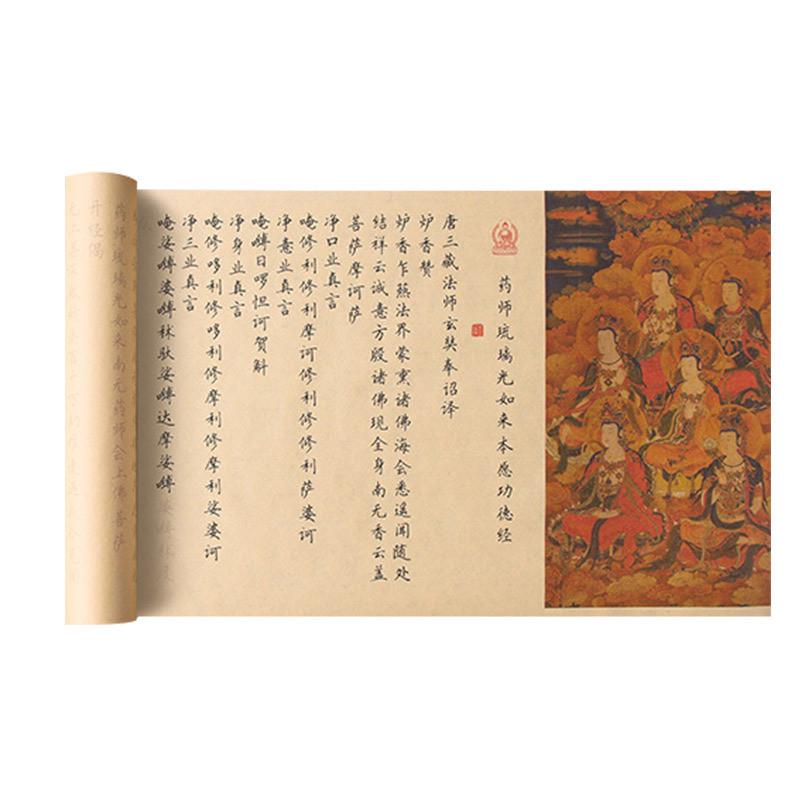 药师琉璃光如来本愿功德经
唐三藏法师玄奘奉诏译
炉香赞
炉香乍爇法界蒙熏诸佛海会悉遥闻随处
结祥云诚意方殷诸佛现全身南无香云盖
菩萨摩诃萨
净口业真言
唵修利修利摩诃修利修修利萨婆诃
净意业真言
唵嚩日啰怛诃贺斛
净身业真言
唵修哆利修哆利修摩利修摩利娑婆诃
净三业真言
唵娑嚩婆嚩秫驮娑嚩达摩娑嚩
药师琉璃光如来南无药师会上佛菩萨
开经偈